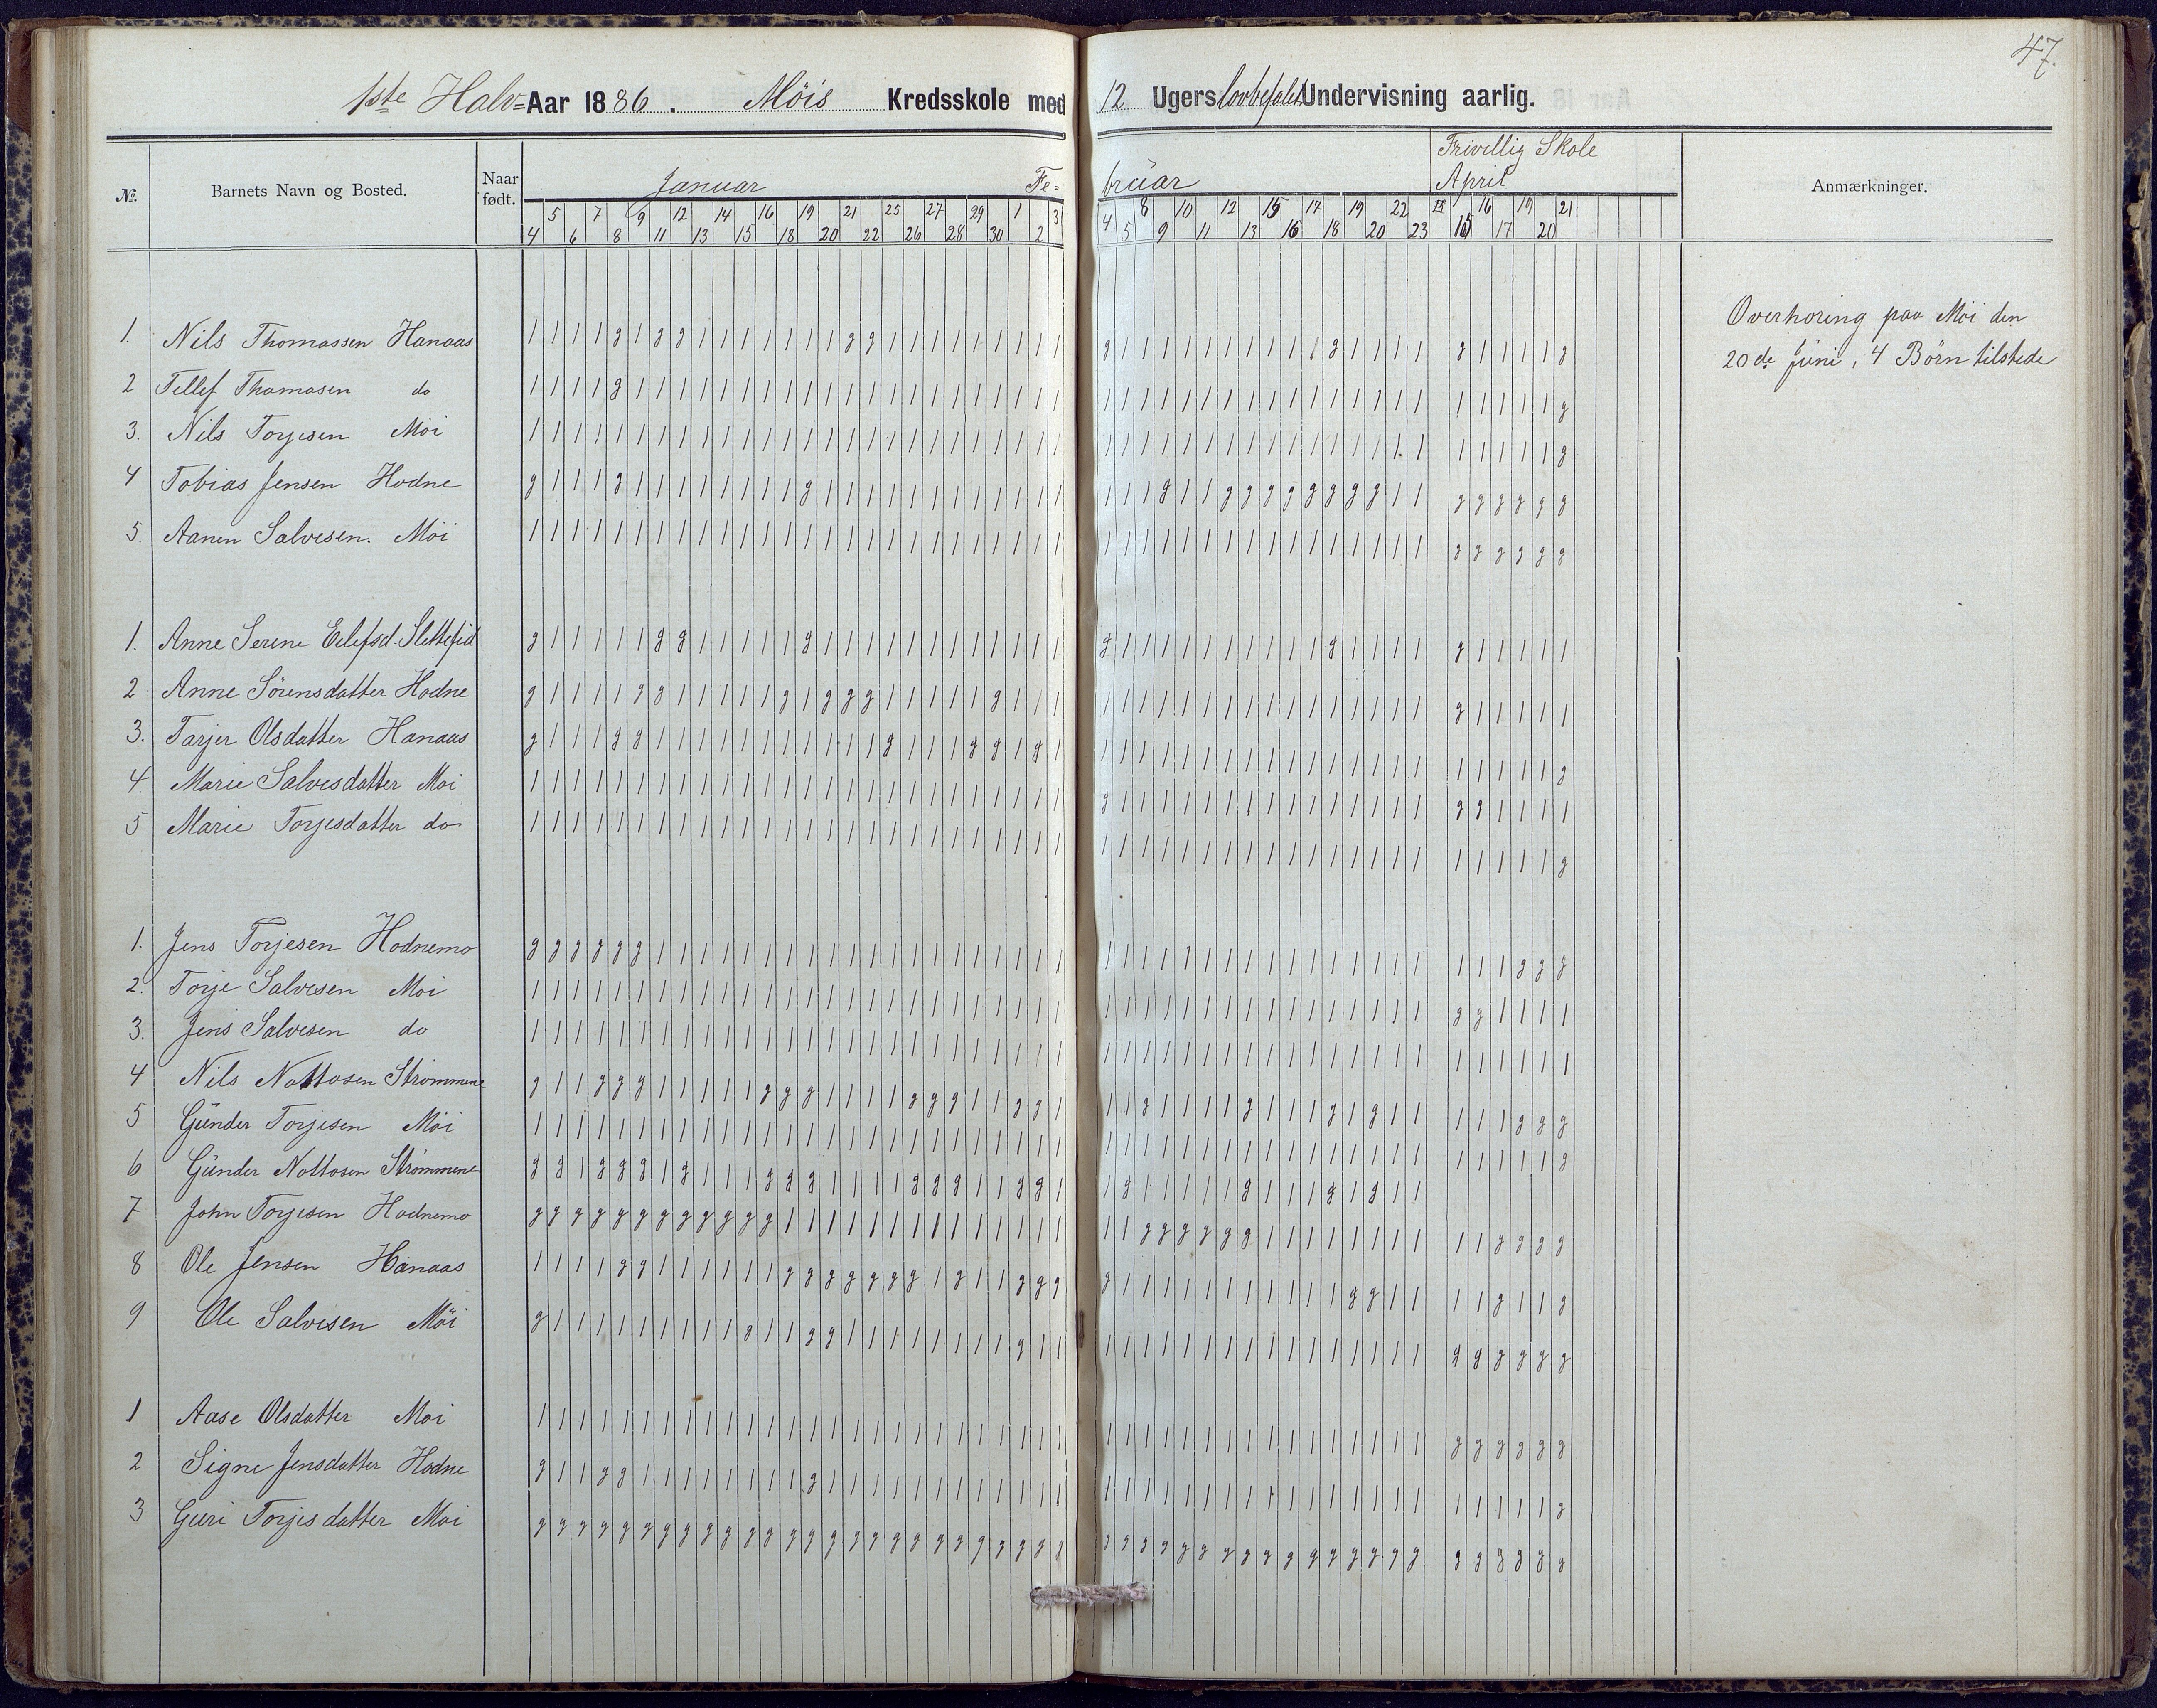 47.
1ste Halv=Aar 1886. Möis Kredsskole med 12 Ugers lovbefalet Undervisning aarlig.
№. Barnets Navn og Bosted. Naar født. Januar Fe-bruar Frivillig Skole April Anmærkninger.
5 7 9 12 14 16 19 21 25 27 29 1 3 8 10 12 15 17 19 22 13 16 19 21
4 6 8 11 13 15 18 20 22 26 28 30 2 4 5 9 11 13 16 18 20 23 15 17 20
Overhøring paa Möi den
20de Juni, 4 Børn tilstede
1. Nils Thomassen Hanaas
2 Tellef Thomasen do
3. Nils Torjesen Möi
4 Tobias Jensen Hodne
5. Aanen Salvesen. Möi
1. Anne Serine Eilefsd. Slettefid
2 Anne Sörensdatter Hodne
3. Tarjer Olsdatter Hanaas
4. Marie Salvesdatter Moi
5 Marie Torjesdatter do
1. Jens Torjesen Hodnemo
2. Torje Salvesen Moi
3. Jens Salvesen do
4 Nils Nottosen Strömmene
5 Günder Torjesen Möi
6 Günder Nottosen Strömmene
7 John Torjesen Hodnemo
8 Ole Jensen Hanaas
9 Ole Salvesen Möi
1 Aase Olsdatter Moi
2 Signe Jensdatter Hodne
3 Guri Torjesdatter Moi